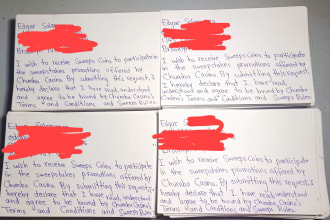 Edgar
I wish to receive Sweeps Coins to participate
in the sweepstakes promotions offered by
Chumba Casino. By submitting this request, I
hereby declare that I have read, understood
and agree to be bound by Chumba Casino's
Terms and Conditions and Sweeps Rules.
Edgar
Brooklyn
I wish to receive Sweeps Coins to participate
in the sweepstakes promotions offered by
Chumba Casino. By submitting this request,
I hereby declare that I have read,
understood and agree to be bound by Chumba
Casino's Terms and Conditions and Sweeps Rules
Edgar
I wish to receive Sweeps Coins to participate
in the sweepstakes promotions offered by
Chumba Casino. By submitting this request, I
hereby declare that I have read, understood
and agree to be bound by Chumba Casino's
Terms and Conditions and Sweeps Rules
Edgar
I wish to receive Sweeps Coins to participate
in the sweepstakes promotions offered by
Chumba Casino. By submitting this request, I
hereby declare that I have read, understood
and agree to be bound by Chumba Casino's
Terms and Conditions and Sweeps Rules